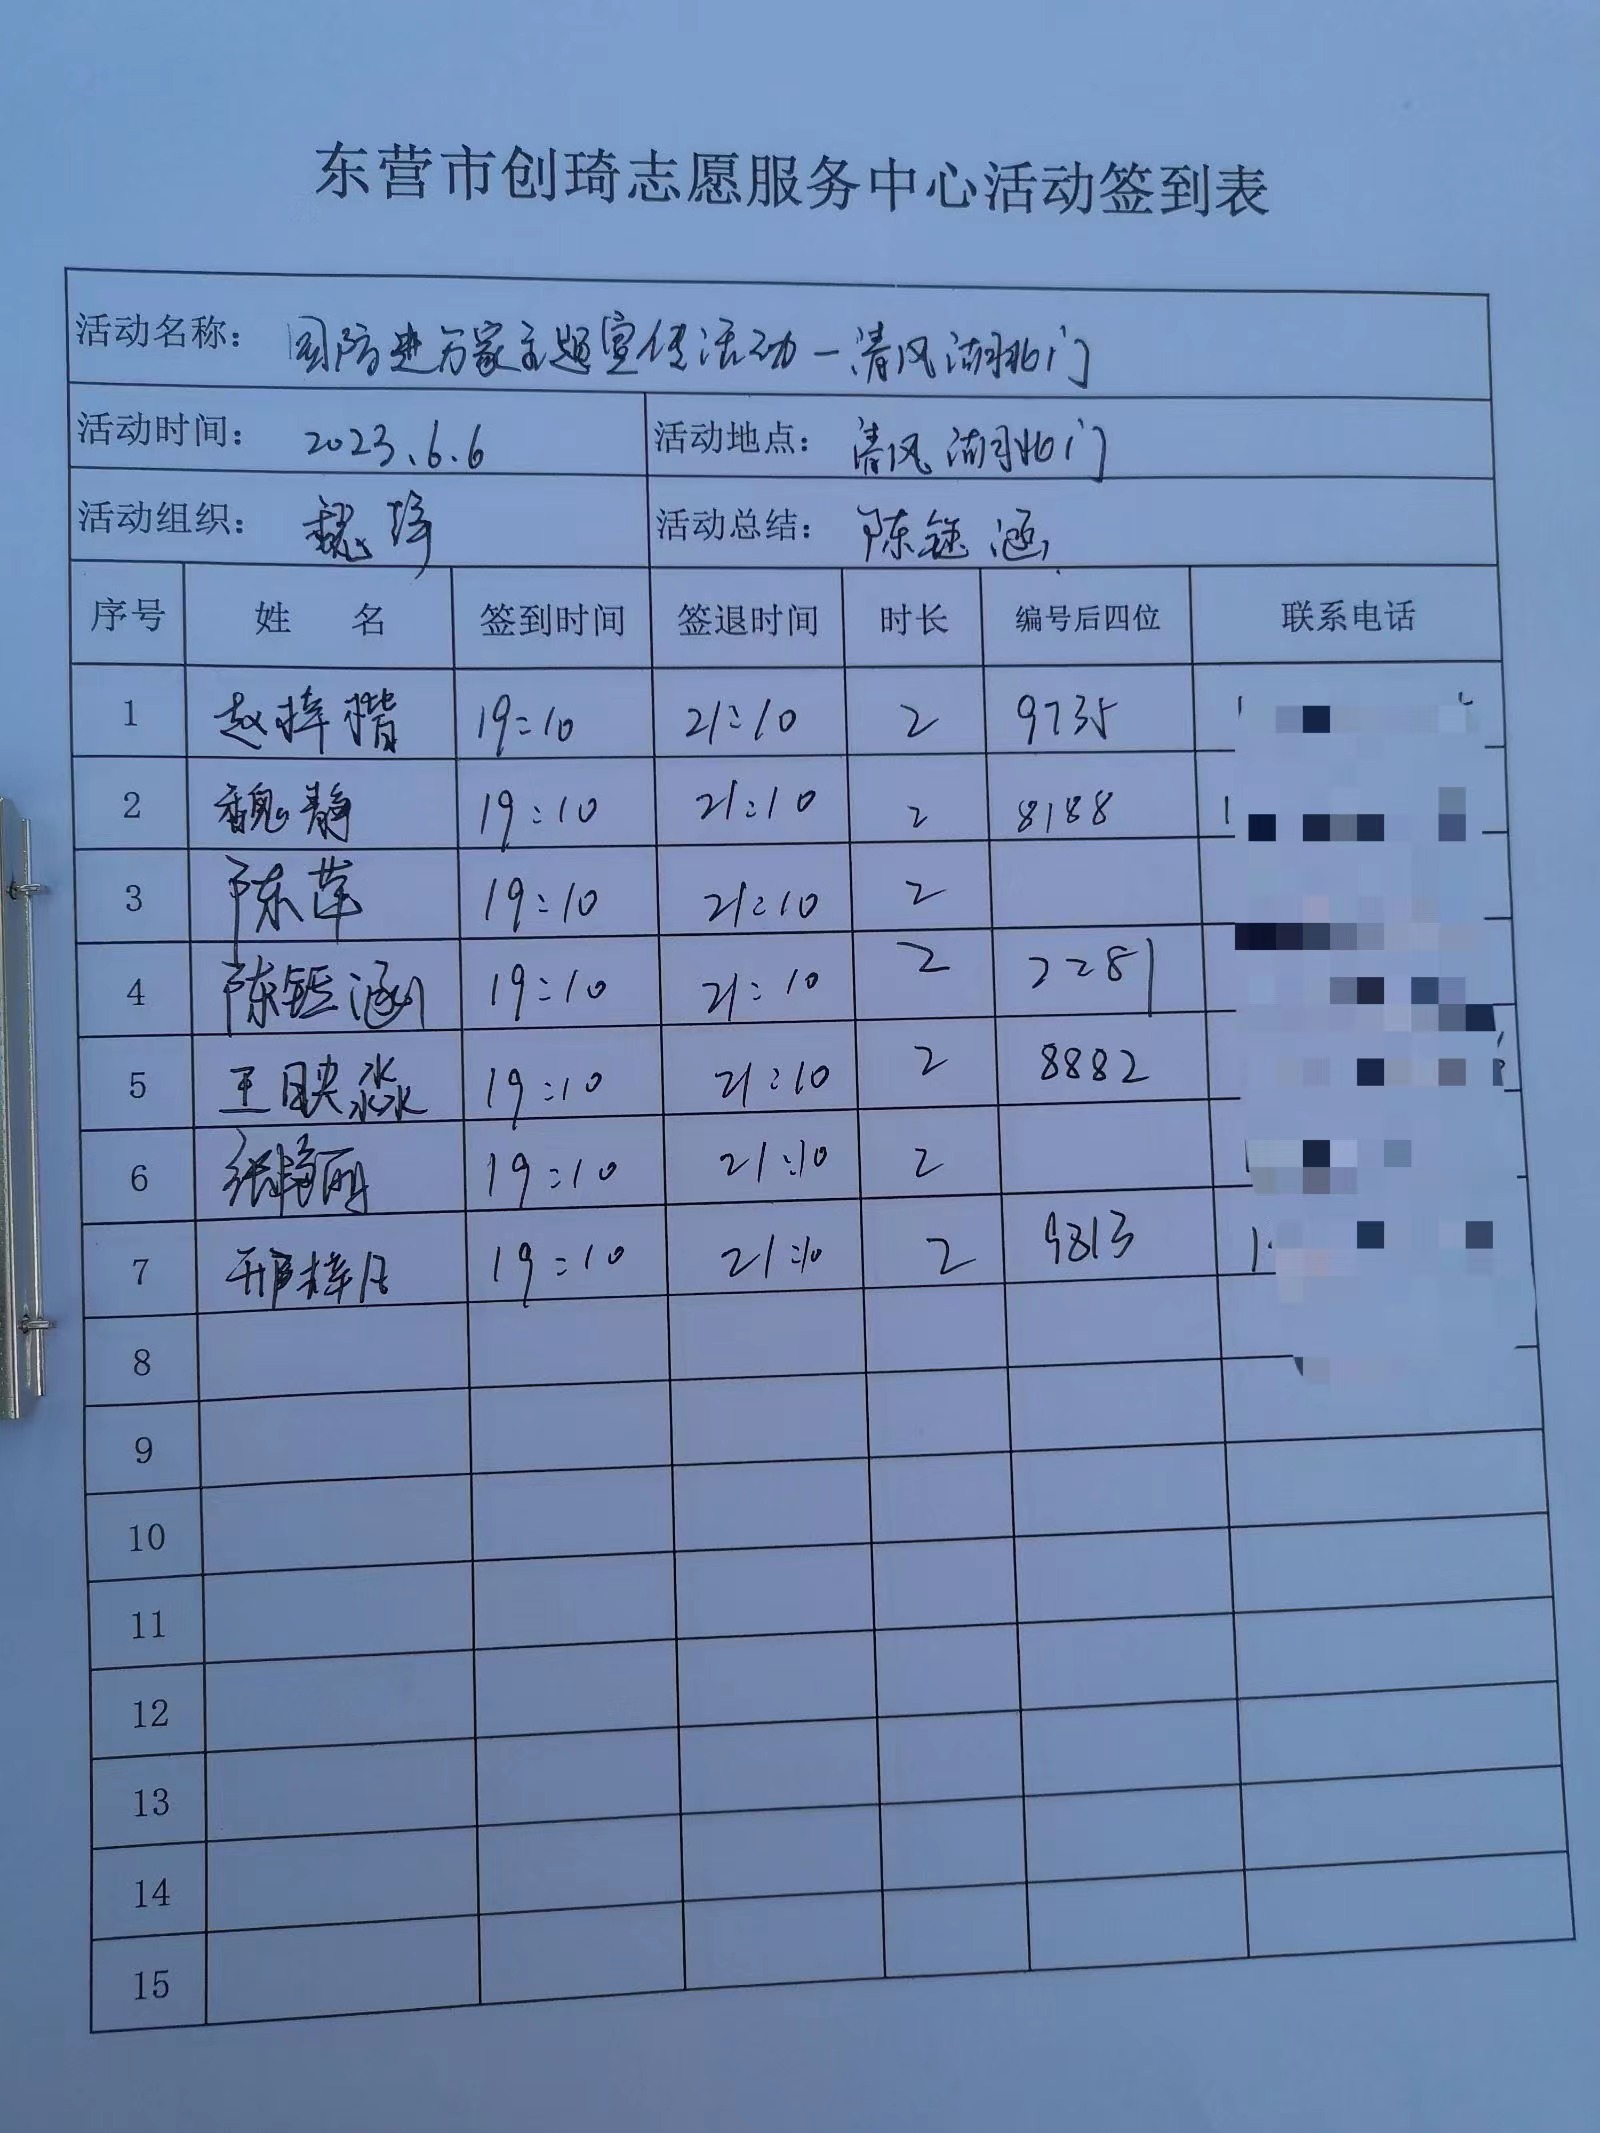 东营市创琦志愿服务中心活动签到表
活动名称: 国防进万家主题宣传活动—清风湖北门
活动时间: 2023.6.6 活动地点: 清风湖北门
活动组织: 魏琦 活动总结: 陈钰涵
序号 姓 名 签到时间 签退时间 时长 编号后四位 联系电话
1 赵梓楷 19:10 21:10 2 9735
2 魏静 19:10 21:10 2 8188
3 陈萍 19:10 21:10 2
4 陈钰涵 19:10 21:10 2 2281
5 王映淼 19:10 21:10 2 8882
6 张梅丽 19:10 21:10 2
7 邢梓 19:10 21:10 2 9813
8
9
10
11
12
13
14
15